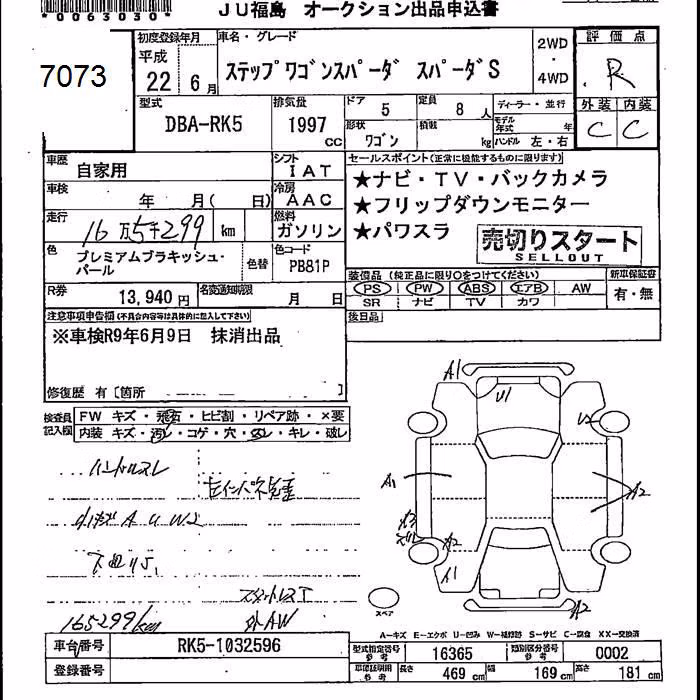 *0063030*
JU福島 オークション出品申込書
7073
初度登録年月
平成
22 6月
車名・グレード
ステップワゴンスパーダ スパーダS
2WD
・
4WD
評価点
R
型式
DBA-RK5
排気量
1997 cc
ドア
5
定員
8人
形状
ワゴン
積載
kg
ディーラー・並行
モデル年式 年
ハンドル 左・右
外装 内装
C C
車歴
自家用
シフト
IAT
車検
年 月( 日)
冷房
AAC
走行
16万5千299 km
燃料
ガソリン
色
プレミアムブラキッシュ・パール
色替
色コード
PB81P
R券
13,940円
名変通知期限
月 日
セールスポイント(正常に機能するものに限ります)
★ナビ・TV・バックカメラ
★フリップダウンモニター
★パワスラ
売切りスタート
SELLOUT
装備品(純正品に限り○をつけてください)
PS PW ABS エアB AW
SR ナビ TV カワ
新車保証書
有・無
後日品
注意事項申告欄(不具合内容等は具体的に記入して下さい)
※車検R9年6月9日 抹消出品
修復歴 有〔箇所 〕
検査員記入欄
FW キズ・飛石・ヒビ割・リペア跡・×要
内装 キズ・汚レ・コゲ・穴・スレ・キレ・破レ
ハンドルスレ
小キズ A U W2
下廻りS1
スタットレスT
外AW
165299km
A1
U1
U2
A1
A2
A3
スリ
A2
A1
A2
スペア
A-キズ E-エクボ U-凹み W-補修跡 S-サビ C-腐食 XX-交換済
車台番号
RK5-1032596
登録番号
型式指定番号 参考
16365
類別区分番号 参考
0002
車検証明用 参考
長さ 469 cm
幅 169 cm
高さ 181 cm